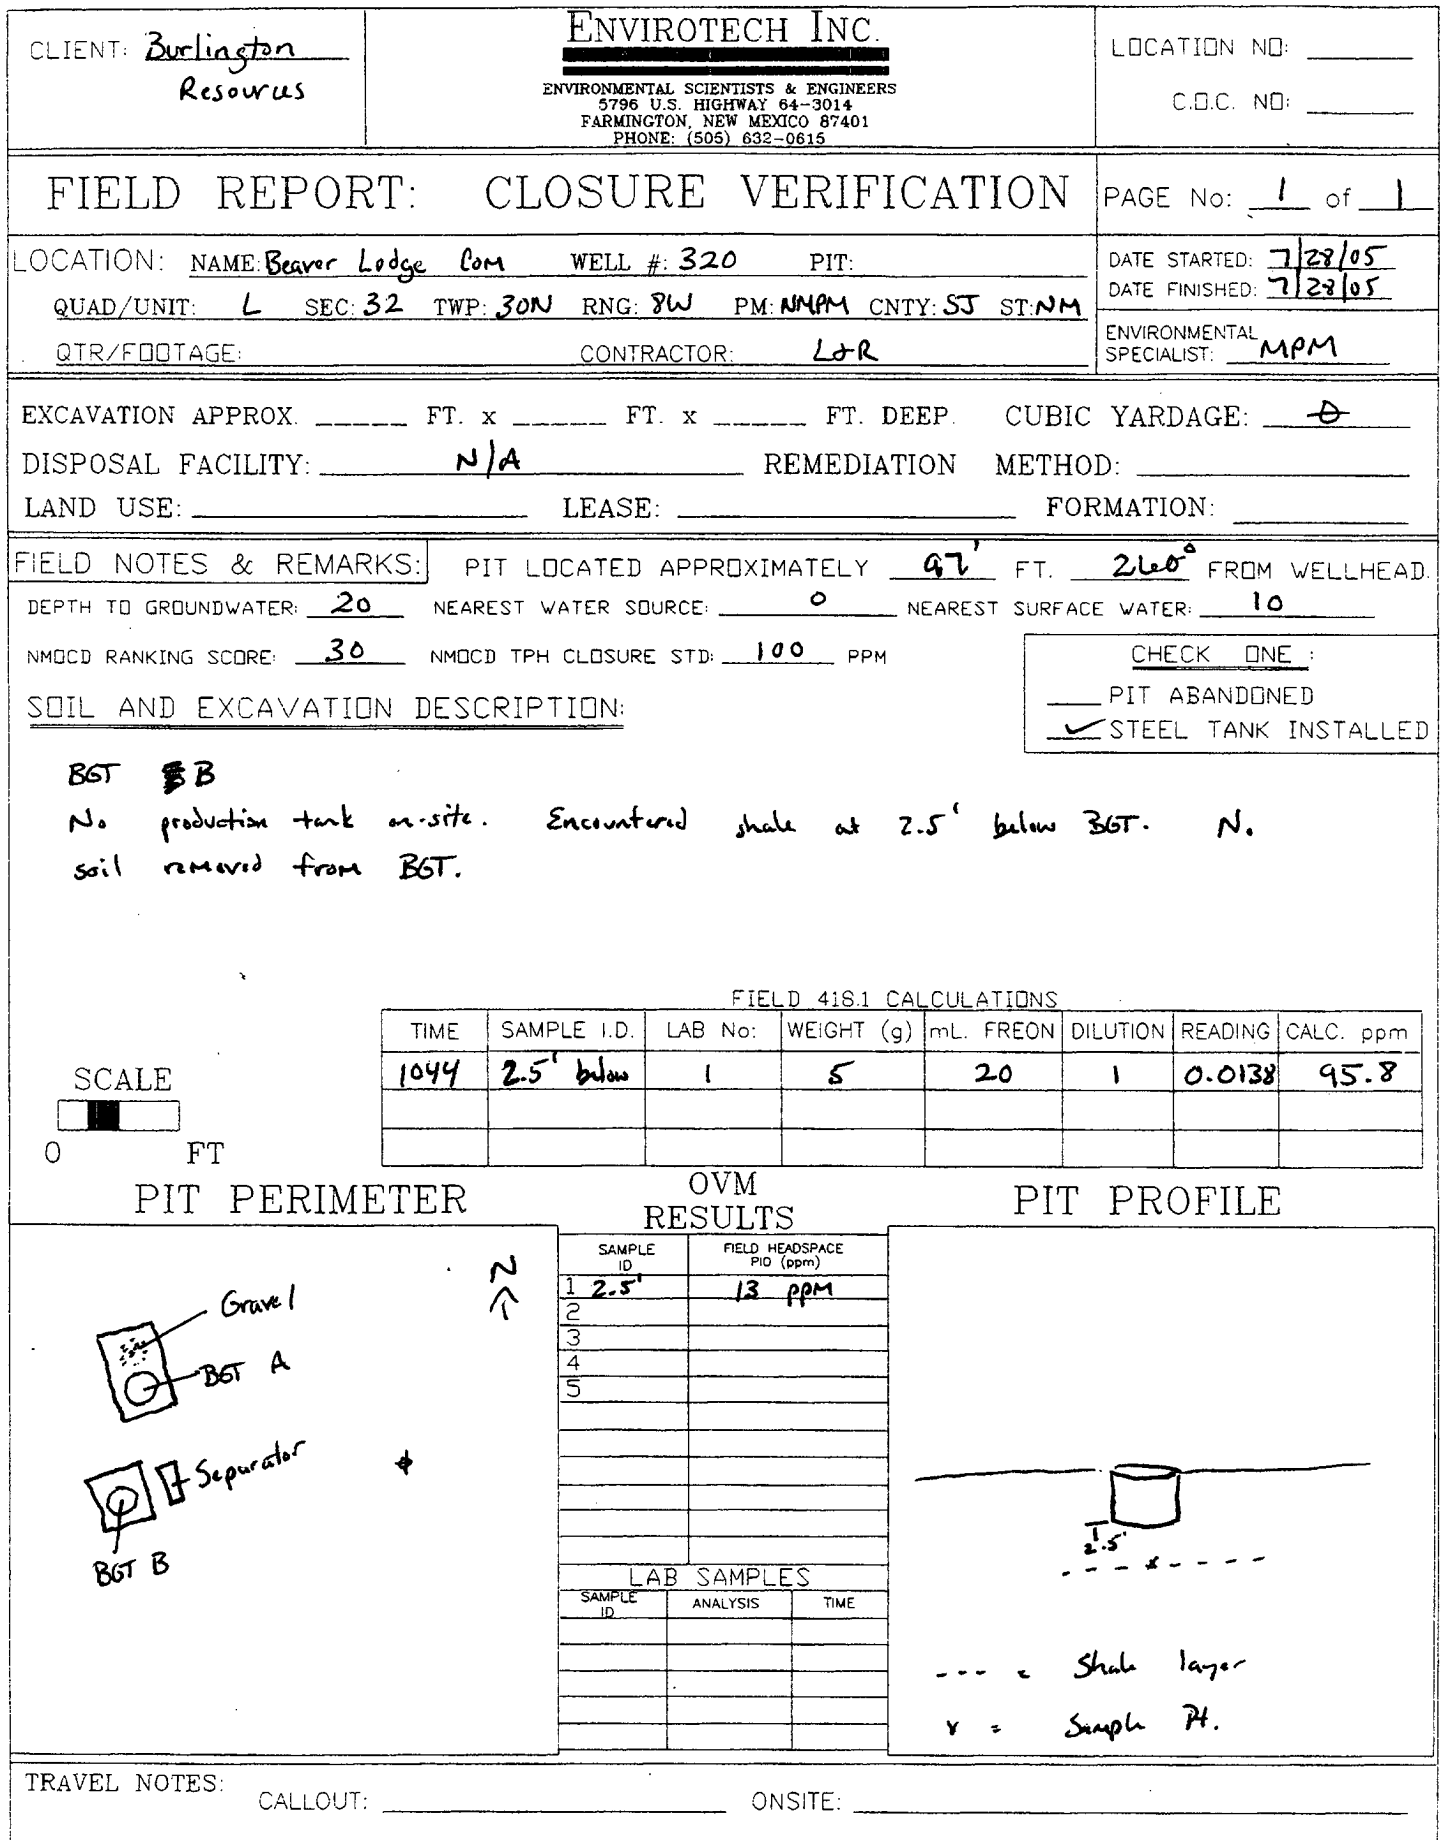 CLIENT: Burlington
Resources
ENVIROTECH INC.
ENVIRONMENTAL SCIENTISTS & ENGINEERS
5796 U.S. HIGHWAY 64-3014
FARMINGTON, NEW MEXICO 87401
PHONE: (505) 632-0615
LOCATION NO:
C.O.C. NO:
FIELD REPORT: CLOSURE VERIFICATION
PAGE No: 1 of 1
LOCATION: NAME: Beaver Lodge Com WELL #: 320 PIT:
QUAD/UNIT: L SEC: 32 TWP: 30N RNG: 8W PM: NMPM CNTY: SJ ST: NM
QTR/FOOTAGE: CONTRACTOR: L&R
DATE STARTED: 7/28/05
DATE FINISHED: 7/28/05
ENVIRONMENTAL
SPECIALIST: MPM
EXCAVATION APPROX. FT. x FT. x FT. DEEP. CUBIC YARDAGE: 0
DISPOSAL FACILITY: N/A REMEDIATION METHOD:
LAND USE: LEASE: FORMATION:
FIELD NOTES & REMARKS: PIT LOCATED APPROXIMATELY 97' FT. 260° FROM WELLHEAD.
DEPTH TO GROUNDWATER: 20 NEAREST WATER SOURCE: 0 NEAREST SURFACE WATER: 10
NMOCD RANKING SCORE: 30 NMOCD TPH CLOSURE STD: 100 PPM
CHECK ONE :
PIT ABANDONED
✓ STEEL TANK INSTALLED
SOIL AND EXCAVATION DESCRIPTION:
BGT B
No production tank on-site. Encountered shale at 2.5' below BGT. No
soil removed from BGT.
FIELD 418.1 CALCULATIONS
TIME SAMPLE I.D. LAB No: WEIGHT (g) mL. FREON DILUTION READING CALC. ppm
1044 2.5' below 1 5 20 1 0.0138 95.8
SCALE
0 FT
PIT PERIMETER
N
Gravel
BGT A
Separator
BGT B
OVM
RESULTS
SAMPLE
ID
FIELD HEADSPACE
PID (ppm)
1 2.5' 13 ppm
2
3
4
5
LAB SAMPLES
SAMPLE
ID
ANALYSIS TIME
PIT PROFILE
2.5'
x
--- = Shale layer
x = Sample Pt.
TRAVEL NOTES:
CALLOUT: ONSITE: